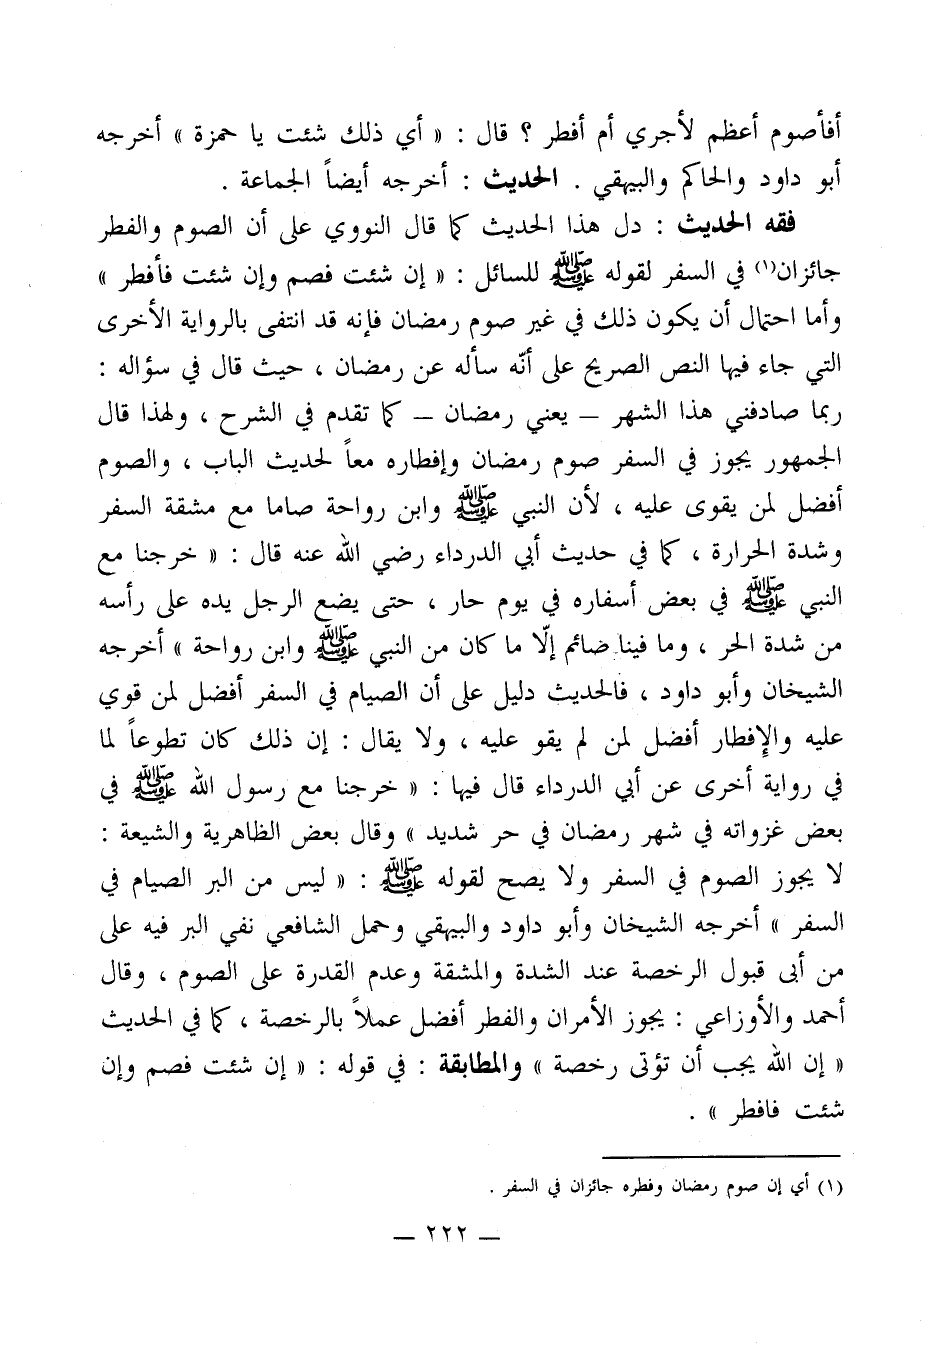 أفأصوم أعظم لأجري أم أفطر ؟ قال : « أي ذلك شئت يا حمزة » أخرجه
أبو داود والحاكم والبيهقي . الحديث : أخرجه أيضاً الجماعة .
فقه الحديث : دل هذا الحديث كما قال النووي على أن الصوم والفطر
جائزان(١) في السفر لقوله ﷺ للسائل : « إن شئت فصم وإن شئت فأفطر »
وأما احتمال أن يكون ذلك في غير صوم رمضان فإنه قد انتفى بالرواية الأخرى
التي جاء فيها النص الصريح على أنّه سأله عن رمضان ، حيث قال في سؤاله :
ربما صادفني هذا الشهر — يعني رمضان — كما تقدم في الشرح ، ولهذا قال
الجمهور يجوز في السفر صوم رمضان وإفطاره معاً لحديث الباب ، والصوم
أفضل لمن يقوى عليه ، لأن النبي ﷺ وابن رواحة صاما مع مشقة السفر
وشدة الحرارة ، كما في حديث أبي الدرداء رضي الله عنه قال : « خرجنا مع
النبي ﷺ في بعض أسفاره في يوم حار ، حتى يضع الرجل يده على رأسه
من شدة الحر ، وما فينا صائم إلّا ما كان من النبي ﷺ وابن رواحة » أخرجه
الشيخان وأبو داود ، فالحديث دليل على أن الصيام في السفر أفضل لمن قوي
عليه والإفطار أفضل لمن لم يقو عليه ، ولا يقال : إن ذلك كان تطوعاً لما
في رواية أخرى عن أبي الدرداء قال فيها : « خرجنا مع رسول الله ﷺ في
بعض غزواته في شهر رمضان في حر شديد » وقال بعض الظاهرية والشيعة :
لا يجوز الصوم في السفر ولا يصح لقوله ﷺ : « ليس من البر الصيام في
السفر » أخرجه الشيخان وأبو داود والبيهقي وحمل الشافعي نفي البر فيه على
من أبى قبول الرخصة عند الشدة والمشقة وعدم القدرة على الصوم ، وقال
أحمد والأوزاعي : يجوز الأمران والفطر أفضل عملاً بالرخصة ، كما في الحديث
« إن الله يحب أن تؤتى رخصة » والمطابقة : في قوله : « إن شئت فصم وإن
شئت فافطر » .
(١) أي إن صوم رمضان وفطره جائزان في السفر .
— ٢٢٢ —